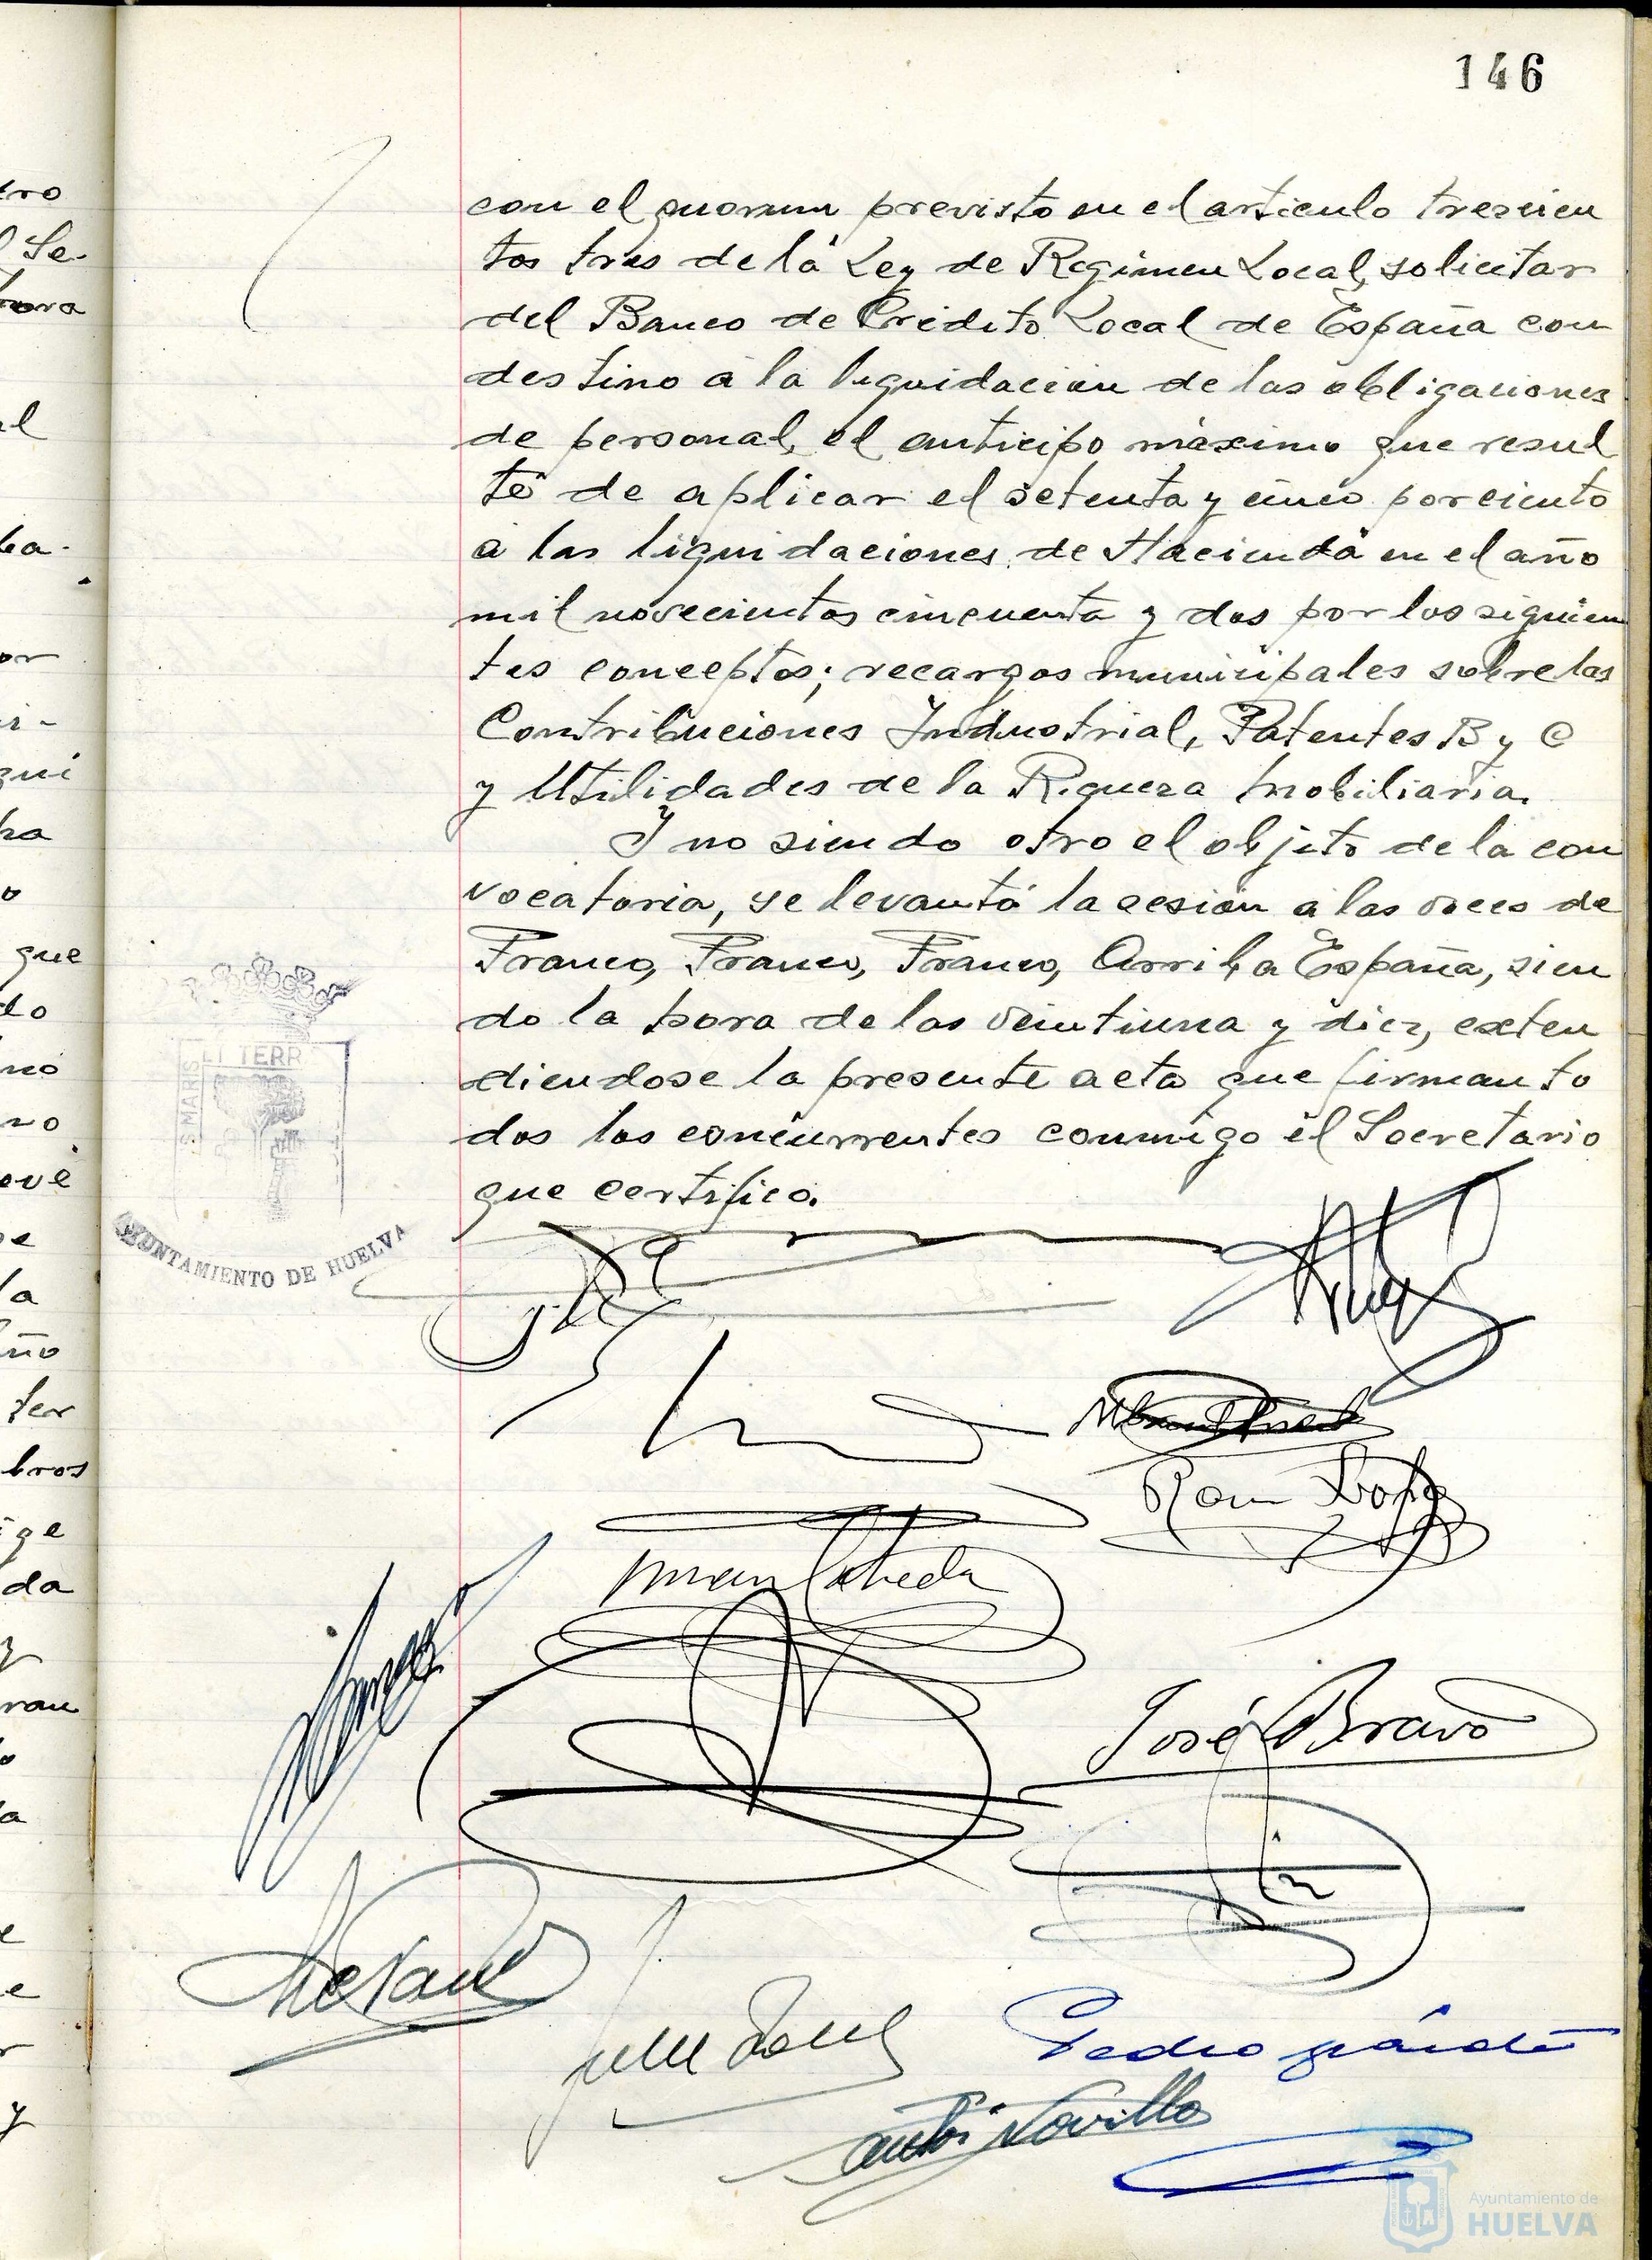 146
con el quorum previsto en el articulo trescien
tos tres de la Ley de Regimen Local, solicitar
del Banco de Crédito Local de España con
destino a la liquidacion de las obligaciones
de personal, el anticipo máximo que resul
te de aplicar el setenta y cinco por ciento
a las liquidaciones de Hacienda en el año
mil novecientos cincuenta y dos por los siguien
tes conceptos; recargos municipales sobre las
Contribuciones Industrial, Patentes B y C
y Utilidades de la Riqueza Mobiliaria.
Y no siendo otro el objeto de la con
vocatoria, se levantó la sesión a las voces de
Franco, Franco, Franco, Arriba España, sien
do la hora de las veintiuna y diez, exten
diendose la presente acta que firman to
dos los concurrentes conmigo el Secretario
que certifico.
LI TERR
S MARIS
AYUNTAMIENTO DE HUELVA
José Bravo
Pedro
Novillo
Ayuntamiento de
HUELVA
tro
l Se-
hora
al
or
que
do
no
ove
la
ño
ter
bros
ige
da
ran
y